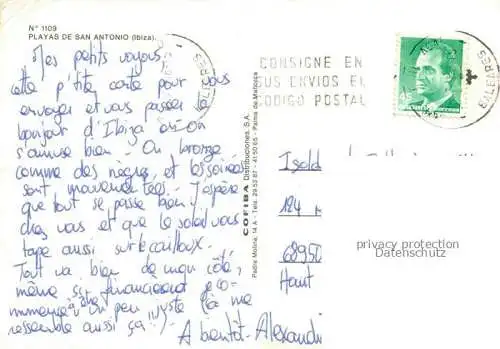 Nº 1109
PLAYAS DE SAN ANTONIO (Ibiza).
Mes petits voyous,
Cette p'tite carte pour vous
envoyer et vous passer le
bonjour d'Ibiza où on
s'amuse bien. On bronze
comme des nègres, et les soirées
sont mouvementées. J'espère
que tout se passe bien
chez vous et que le soleil vous
tape aussi sur le cailloux.
Tout va bien de mon côté,
même si financièrement je co-
mmence à être un peu juste (ça me
ressemble aussi ça!).
A bientôt - Alexandr
COFIBA Distribuciones, S.A.
Padre Molina, 14 A - Tels. 29 52 87 - 41 50 65 - Palma de Mallorca
CONSIGNE EN
SUS ENVIOS EL
CODIGO POSTAL
BALEARES
BALEARES
Isold
124
68950
Haut
privacy protection
Datenschutz